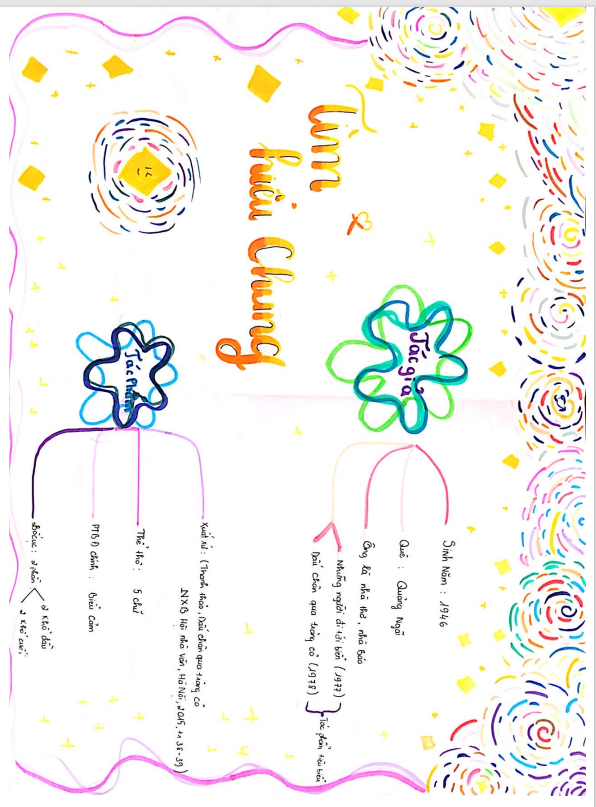 Tìm
hiểu Chung
Tác giả
Sinh Năm : 1946
Quê : Quảng Ngãi
Ông là nhà thơ, nhà báo
Những người đi tới biển (1977)
Dấu chân qua trảng cỏ (1978)
Tác phẩm tiêu biểu
Tác phẩm
Xuất xứ : (Thanh thảo, Dấu chân qua trảng cỏ
NXB Hội nhà văn, Hà Nội, 2015, tr 38-39)
Thể thơ : 5 chữ
PTBĐ chính : Biểu cảm
Bố cục : 2 phần
2 khổ đầu
2 khổ cuối